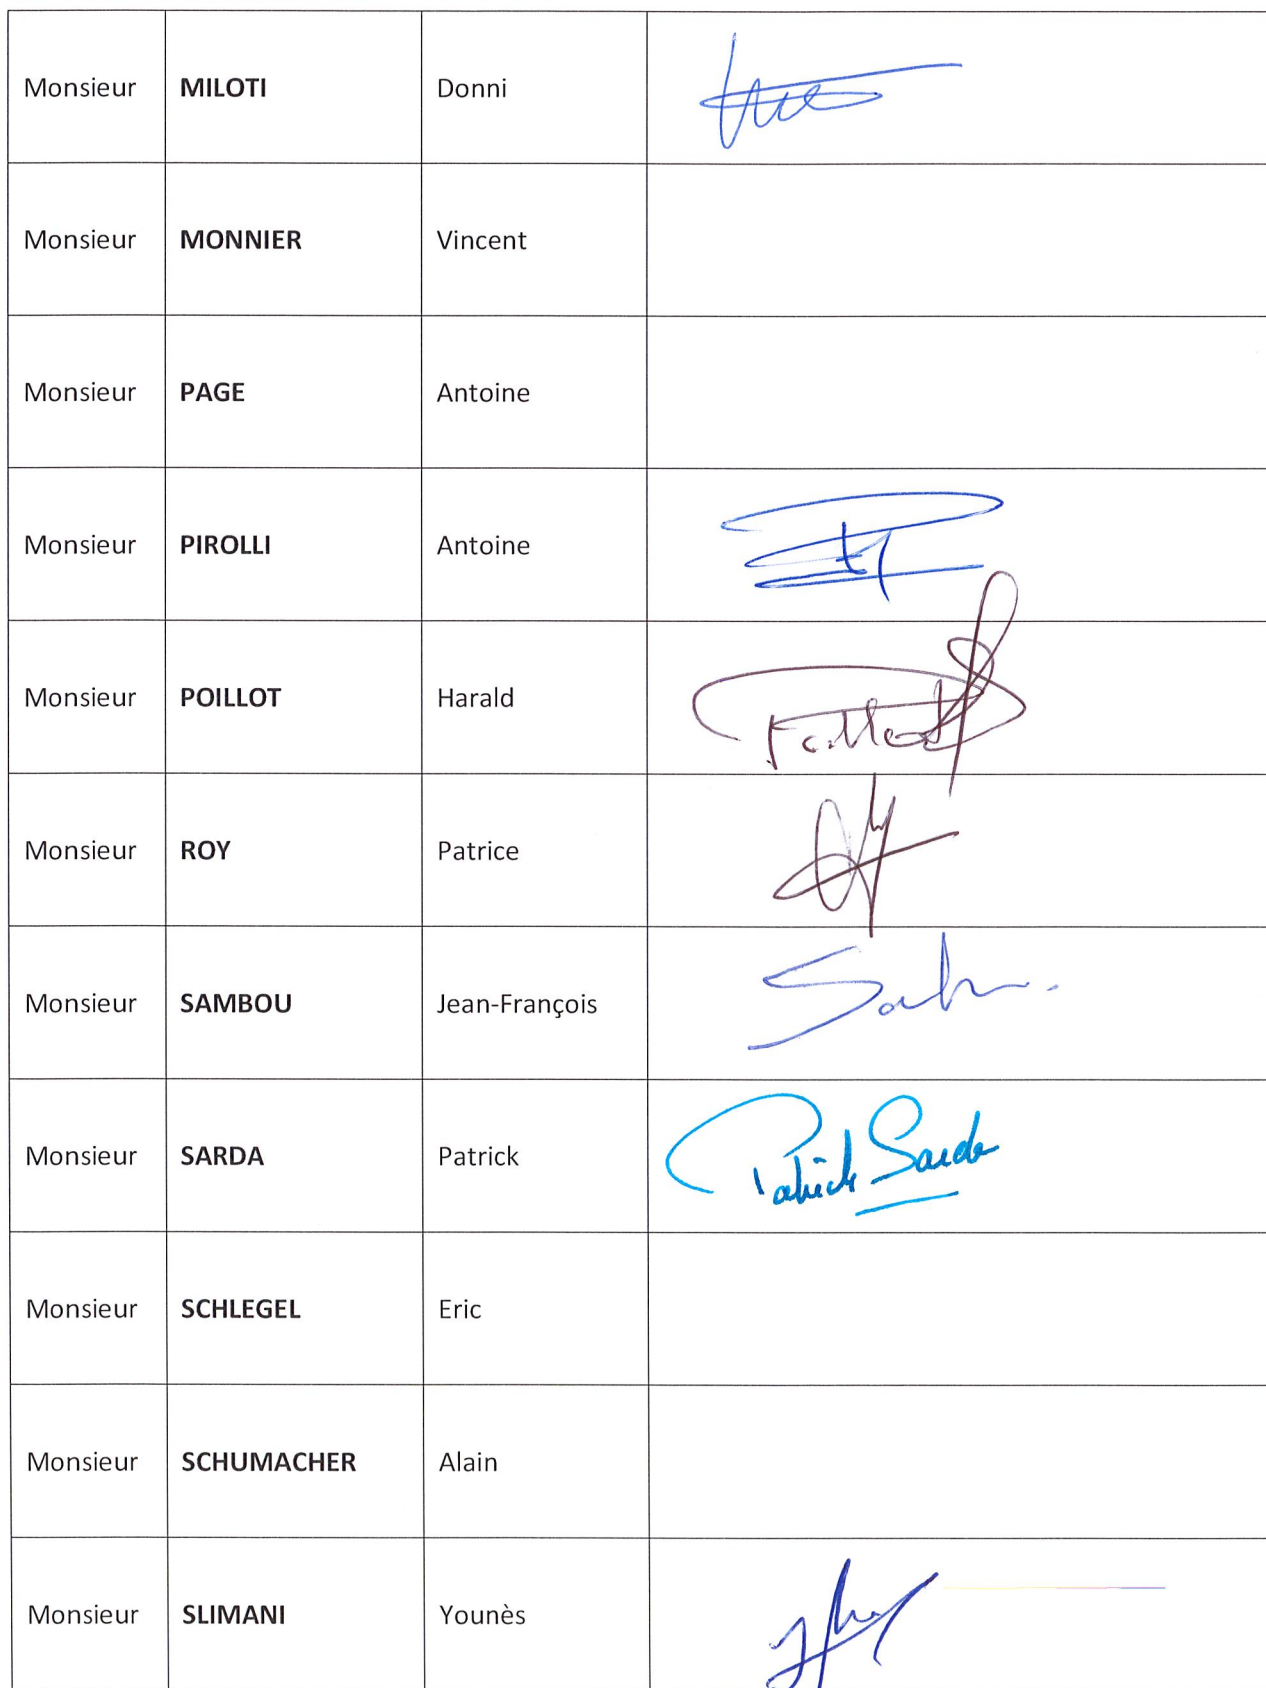 Monsieur MILOTI Donni
Monsieur MONNIER Vincent
Monsieur PAGE Antoine
Monsieur PIROLLI Antoine
Monsieur POILLOT Harald
Monsieur ROY Patrice
Monsieur SAMBOU Jean-François
Monsieur SARDA Patrick Patrick Sarda
Monsieur SCHLEGEL Eric
Monsieur SCHUMACHER Alain
Monsieur SLIMANI Younès